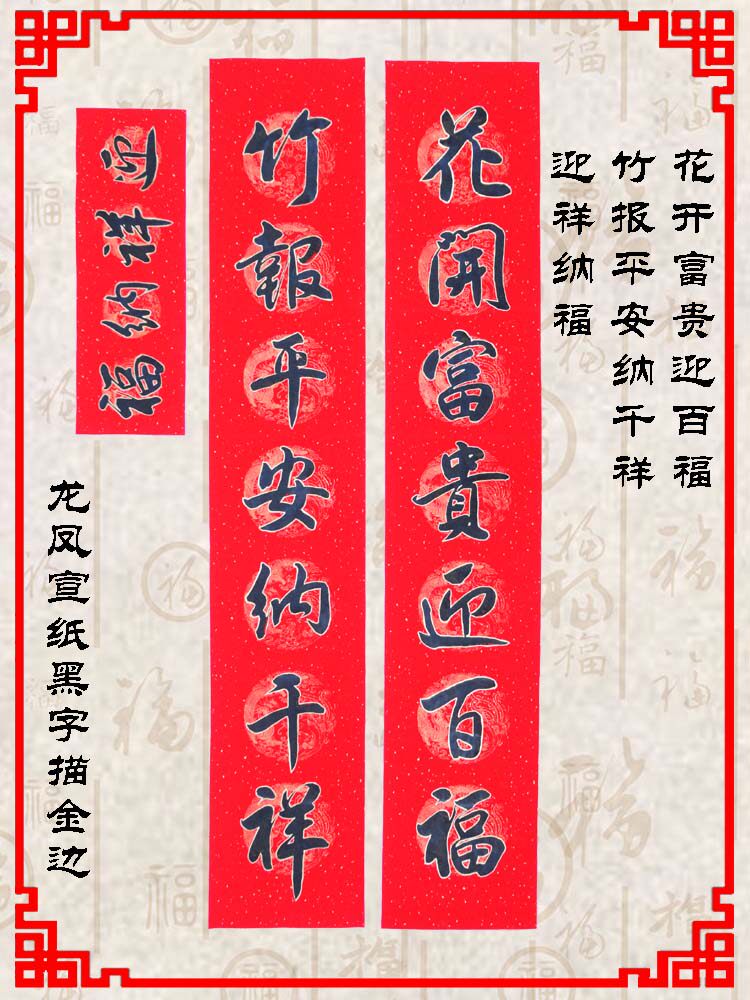 花開富貴迎百福
竹報平安納千祥
迎祥納福
花开富贵迎百福
竹报平安纳千祥
迎祥纳福
龙凤宣纸黑字描金边